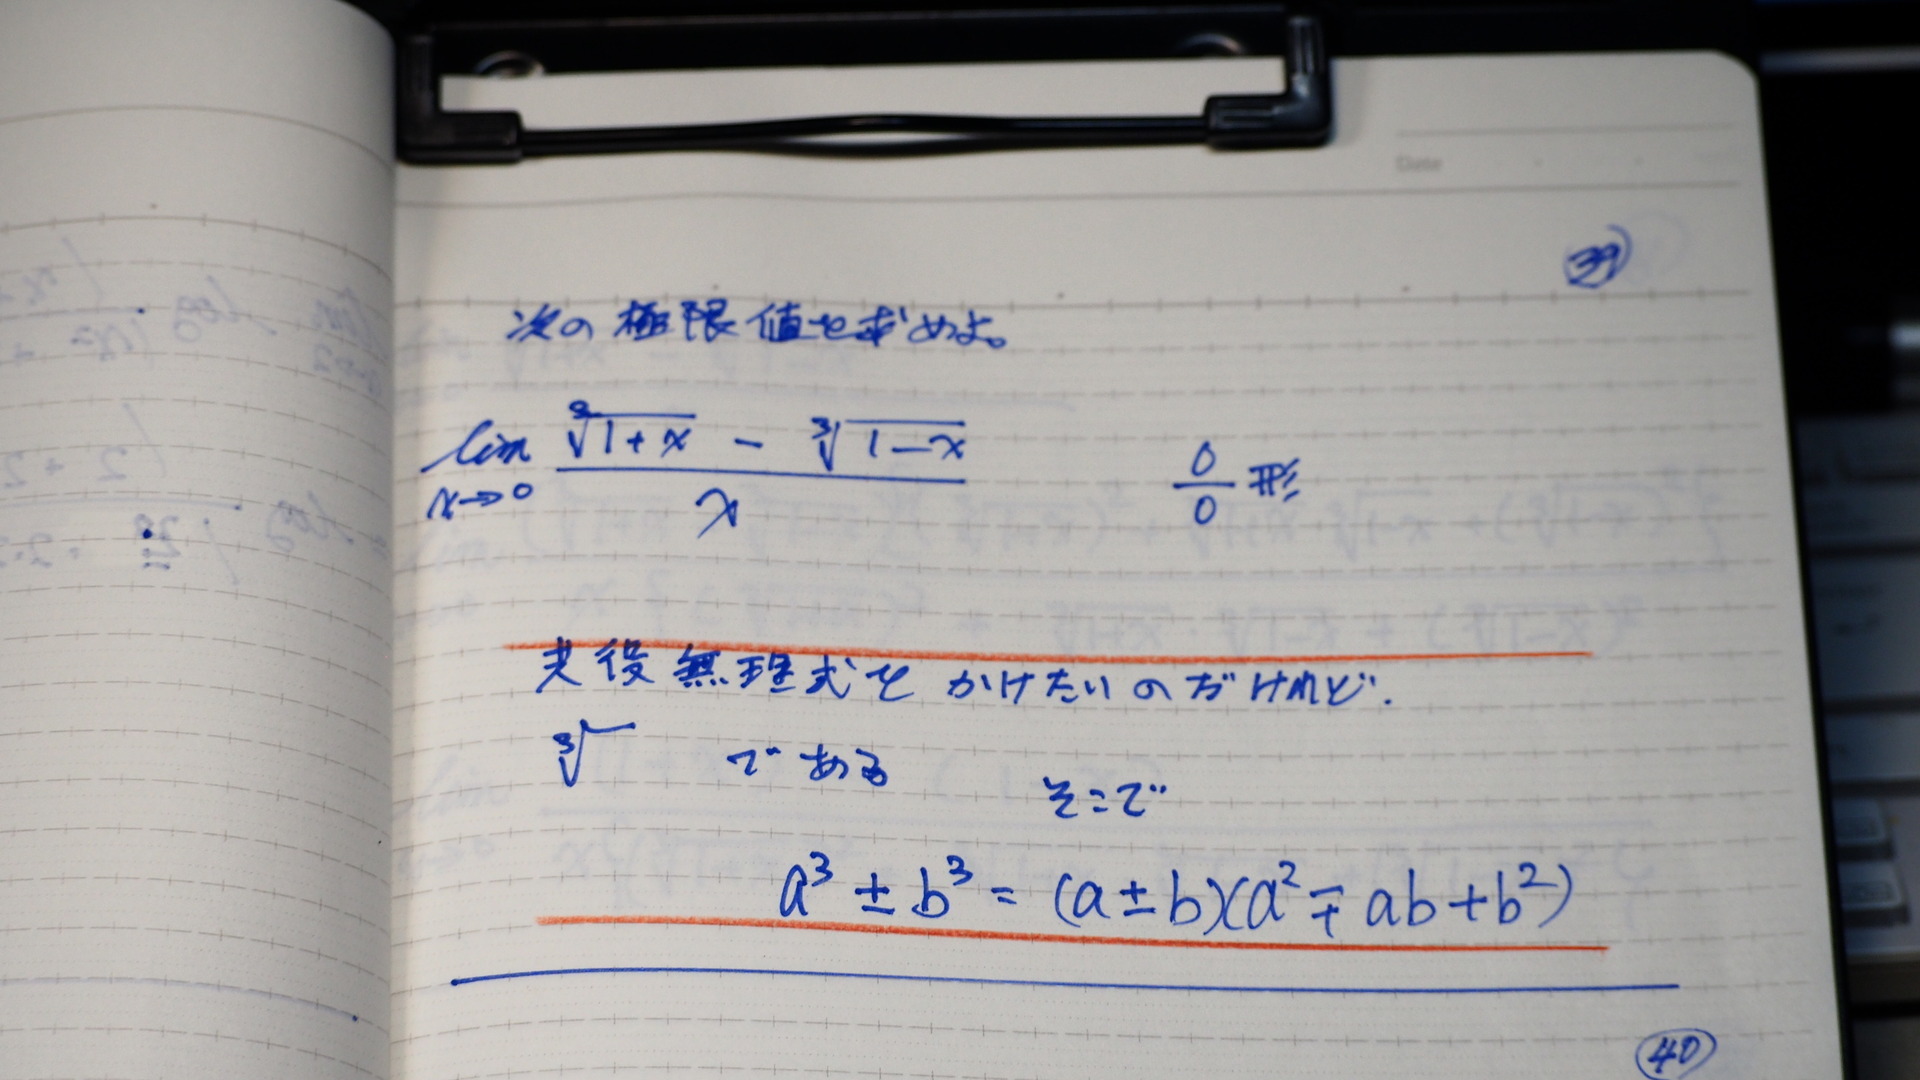 Date
㊴
次の極限値を求めよ。
lim x→0 (∛(1+x) − ∛(1−x)) / x   0/0 形
共役無理式をかけたいのだけれど.
∛ である そこで
a³ ± b³ = (a ± b)(a² ∓ ab + b²)
㊵